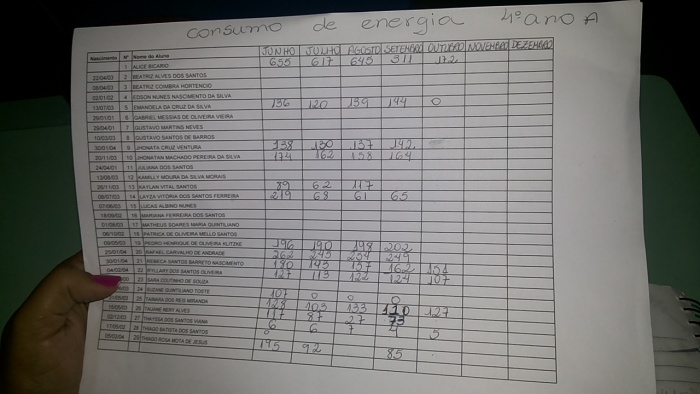 consumo de energia 4º ano A
Nascimento Nº Nome do Aluno JUNHO JULHO AGOSTO SETEMBRO OUTUBRO NOVEMBRO DEZEMBRO
1 ALICE RICARIO 655 617 645 511 172
22/04/03 2 BEATRIZ ALVES DOS SANTOS
08/04/03 3 BEATRIZ COIMBRA HORTENCIO
02/01/02 4 EDSON NUNES NASCIMENTO DA SILVA
13/07/03 5 EMANOELA DA CRUZ DA SILVA 136 120 159 144 0
29/01/01 6 GABRIEL MESSIAS DE OLIVEIRA VIEIRA
29/04/01 7 GUSTAVO MARTINS NEVES
10/03/03 8 GUSTAVO SANTOS DE BARROS
30/01/04 9 JHONATA CRUZ VENTURA 138 130 137 142
20/11/03 10 JHONATAN MACHADO PEREIRA DA SILVA 174 162 158 164
24/04/01 11 JULIANA DOS SANTOS
13/09/03 12 KAMILLY MOURA DA SILVA MORAIS
26/11/03 13 KAYLAN VITAL SANTOS 89 62 117
08/07/03 14 LAYZA VITÓRIA DOS SANTOS FERREIRA 219 68 61 65
07/06/03 15 LUCAS ALBINO NUNES
18/09/02 16 MARIANA FERREIRA DOS SANTOS
01/08/03 17 MATHEUS SOARES MARIA QUINTILIANO
08/10/02 18 PATRICK DE OLIVEIRA MELLO SANTOS
09/05/03 19 PEDRO HENRIQUE DE OLIVEIRA KLITZKE 196 190 198 202
25/01/04 20 RAFAEL CARVALHO DE ANDRADE 262 245 254 249
30/01/04 21 REBECA SANTOS BARRETO NASCIMENTO 180 143 157 162 151
04/02/04 22 RYLLARY DOS SANTOS OLIVEIRA 127 113 122 124 107
23 SARA COUTINHO DE SOUZA
24 SUZANE QUINTILIANO TOSTE 107 0 0 0
25 TAINARA DOS REIS MIRANDA 128 103 133 120 127
26 TAUANE NERY ALVES 117 87 27 73
02/12/03 27 THAYSSA DOS SANTOS VIANA 6 6 7 4 5
17/05/02 28 THIAGO BATISTA DOS SANTOS 0
05/03/04 29 THIAGO ROSA MOTA DE JESUS 195 92 85